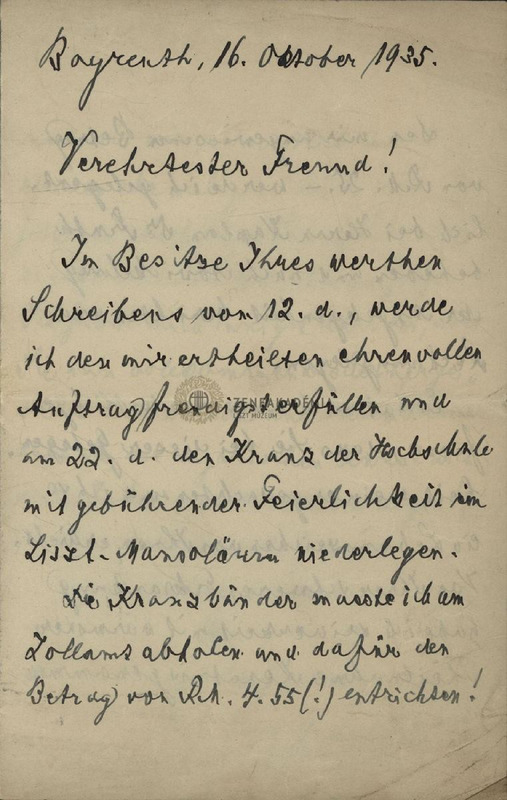 Bayreuth, 16. Oktober 1935.
Verehrtester Freund!
Im Besitze Ihres werthen
Schreibens vom 12. d., werde
ich den mir ertheilten ehrenvollen
Auftrag freudigst erfüllen und
ZENEAKADÉMIA
LISZT MÚZEUM
am 22. d. den Kranz der Hochschule
mit gebührender Feierlichkeit im
Liszt-Mausoläum niederlegen.
Die Kranzbänder musste ich am
Zollamt abholen und dafür den
Betrag von Rk. 4.55 (!) entrichten!